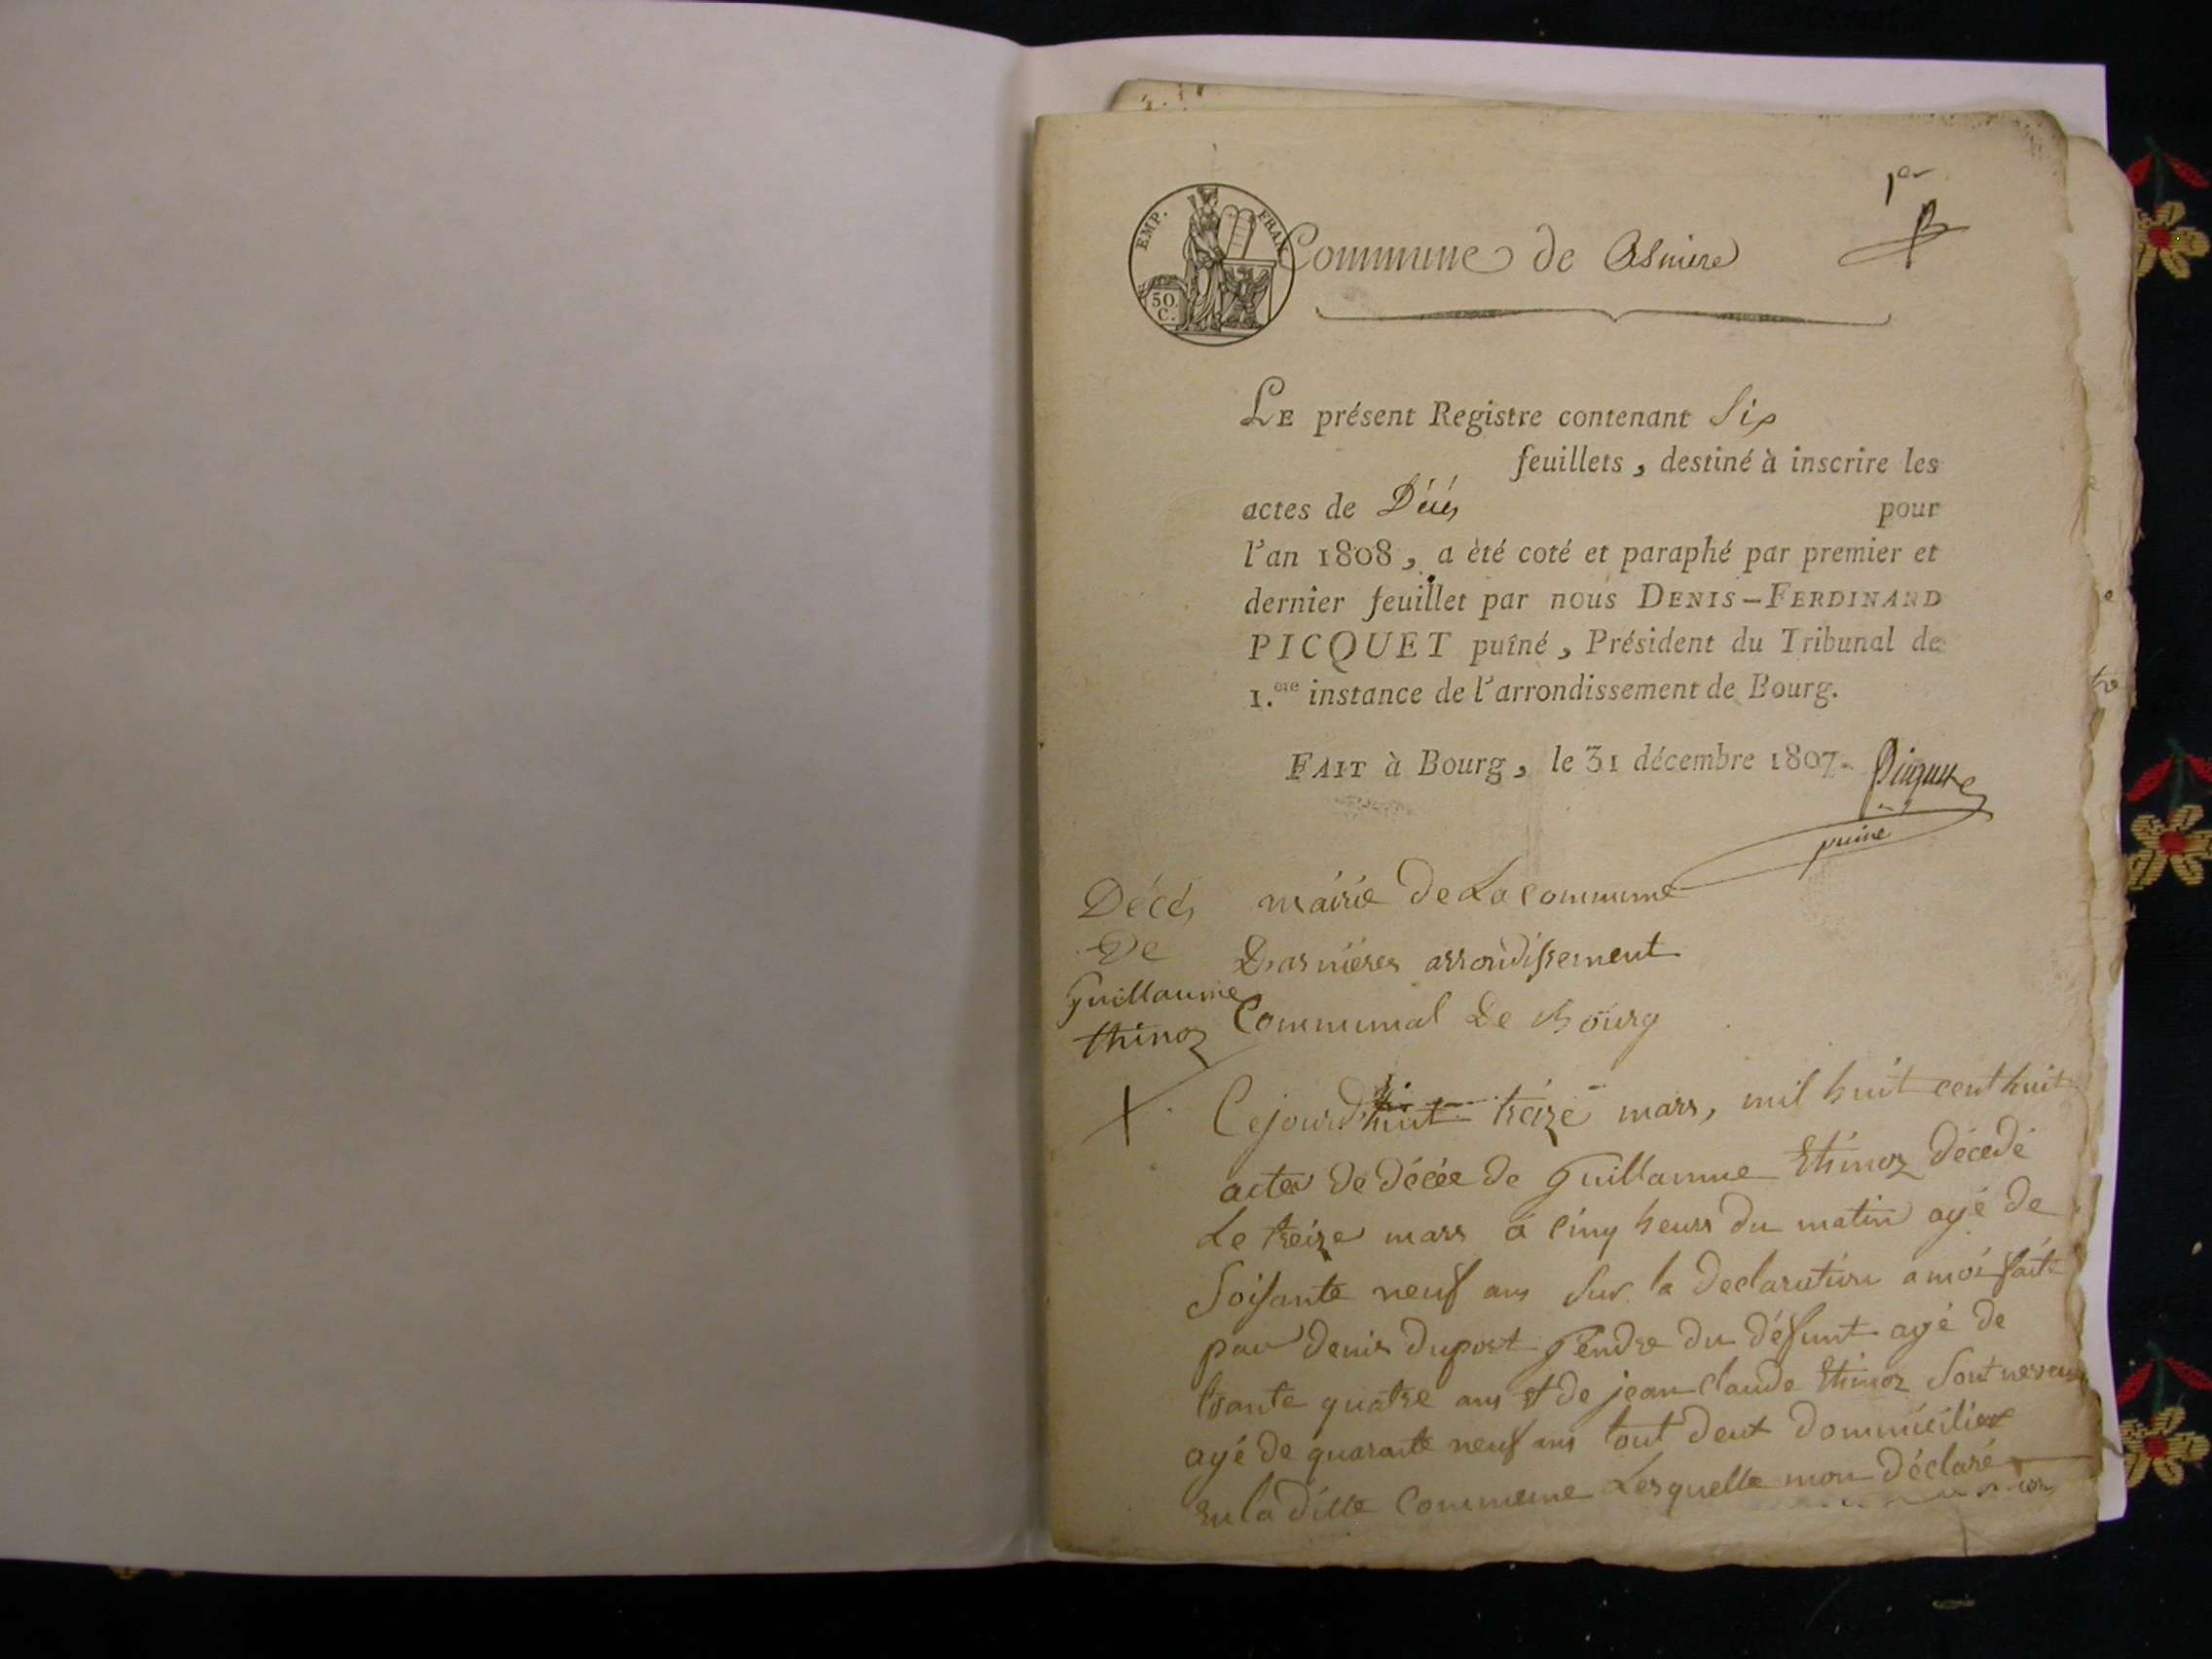 1er
EMP. FRAN
50.
C.
Commune de Asniere
LE présent Registre contenant Six
feuillets, destiné à inscrire les
actes de Décés pour
l'an 1808, a été coté et paraphé par premier et
dernier feuillet par nous DENIS-FERDINAND
PICQUET puîné, Président du Tribunal de
1.ere instance de l'arrondissement de Bourg.
FAIT à Bourg, le 31 décembre 1807.
Picquet
puiné
Décés
De
Guillaume
thinoz
mairie De La commune
Dasnieres arrondissement
Communal De Bourg
Cejourdhuit treize mars, mil huit cent huit
acte De décée de Guillaume thinoz décedé
Le treize mars a cinq heurs du matin agé de
Soisante neuf ans Sur la declaration a moi faite
par denis duport Gendre du défunt agé de
trante quatre ans et de jean claude thinoz Sont neveux
agé de quarante neuf ans tout deux Dommicilier
En la ditte Commune Lesquelle mon déclaré